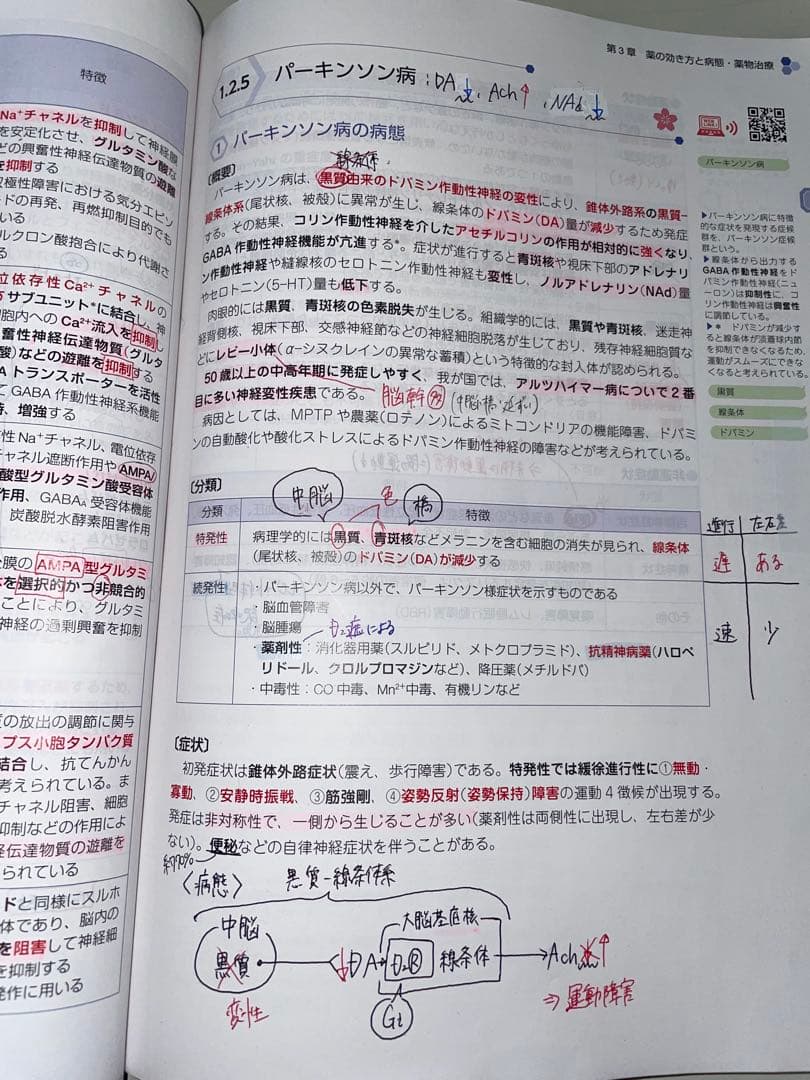 特徴
Na⁺チャネルを抑制して神経膜
を安定化させ、グルタミン酸な
どの興奮性神経伝達物質の遊離
を抑制する
極性障害における気分エピソ
ードの再発、再燃抑制目的でも
いる
ルクロン酸抱合により代謝さ
位依存性Ca²⁺チャネルの
サブユニット*に結合し、神
胞内へのCa²⁺流入を抑制し
興奮性神経伝達物質(グルタ
酸)などの遊離を抑制する
Aトランスポーターを活性
てGABA作動性神経系機能
持、増強する
性Na⁺チャネル、電位依存
チャネル遮断作用やAMPA/
酸型グルタミン酸受容体
作用、GABAA受容体機能
炭酸脱水酵素阻害作用
膜のAMPA型グルタミ
体を選択的かつ非競合的
ことにより、グルタミ
神経の過剰興奮を抑制
の放出の調節に関与
プス小胞タンパク質
結合し、抗てんかん
考えられている。ま
チャネル阻害、細胞
抑制などの作用によ
経伝達物質の遊離を
られている
ドと同様にスルホ
体であり、脳内の
を阻害して神経細
を抑制する
発作に用いる
第3章 薬の効き方と病態・薬物治療
1.2.5 パーキンソン病 : DA↓、Ach↑、NAd↓
1 パーキンソン病の病態
〔概要〕
線条体
パーキンソン病は、黒質由来のドパミン作動性神経の変性により、錐体外路系の黒質-
線条体系(尾状核、被殻)に異常が生じ、線条体のドパミン(DA)量が減少するため発症
する。その結果、コリン作動性神経を介したアセチルコリンの作用が相対的に強くなり、
GABA作動性神経機能が亢進する*。症状が進行すると青斑核や視床下部のアドレナリ
ン作動性神経や縫線核のセロトニン作動性神経も変性し、ノルアドレナリン(NAd)量
やセロトニン(5-HT)量も低下する。
肉眼的には黒質、青斑核の色素脱失が生じる。組織学的には、黒質や青斑核、迷走神
経背側核、視床下部、交感神経節などの神経細胞脱落が生じており、残存神経細胞質な
どにレビー小体(α-シヌクレインの異常な蓄積)という特徴的な封入体が認められる。
50歳以上の中高年期に発症しやすく、我が国では、アルツハイマー病について2番
目に多い神経変性疾患である。
脳幹 (中脳・橋・延髄)
病因としては、MPTPや農薬(ロテノン)によるミトコンドリアの機能障害、ドパミ
ンの自動酸化や酸化ストレスによるドパミン作動性神経の障害などが考えられている。
パーキンソン病
▶パーキンソン病に特徴
的な症状を発現する症候
群を、パーキンソン症候
群という。
▶線条体から出力する
GABA作動性神経をド
パミン作動性神経(ニュ
ーロン)は抑制性に、コ
リン作動性神経は興奮性
に調節している。
▶* ドパミンが減少す
ると線条体が淡蒼球内節
を抑制できなくなるため、
運動がスムーズにできな
くなると考えられている。
黒質
線条体
ドパミン
〔分類〕
中脳 色 橋
分類 特徴
進行 左右差
特発性 病理学的には黒質、青斑核などメラニンを含む細胞の消失が見られ、線条体
(尾状核、被殻)のドパミン(DA)が減少する
遅 ある
続発性 ・パーキンソン病以外で、パーキンソン様症状を示すものである
・脳血管障害
・脳腫瘍
D₂遮による
・薬剤性:消化器用薬(スルピリド、メトクロプラミド)、抗精神病薬(ハロペ
リドール、クロルプロマジンなど)、降圧薬(メチルドパ)
・中毒性:CO中毒、Mn²⁺中毒、有機リンなど
速 少
〔症状〕
初発症状は錐体外路症状(震え、歩行障害)である。特発性では緩徐進行性に①無動・
寡動、②安静時振戦、③筋強剛、④姿勢反射(姿勢保持)障害の運動4徴候が出現する。
発症は非対称性で、一側から生じることが多い(薬剤性は両側性に出現し、左右差が少
ない)。便秘などの自律神経症状を伴うことがある。
約90%
〈病態〉 黒質-線条体系
中脳 大脳基底核
黒質 ↓DA D₂R 線条体 Ach↑
変性 Gi ⇒運動障害